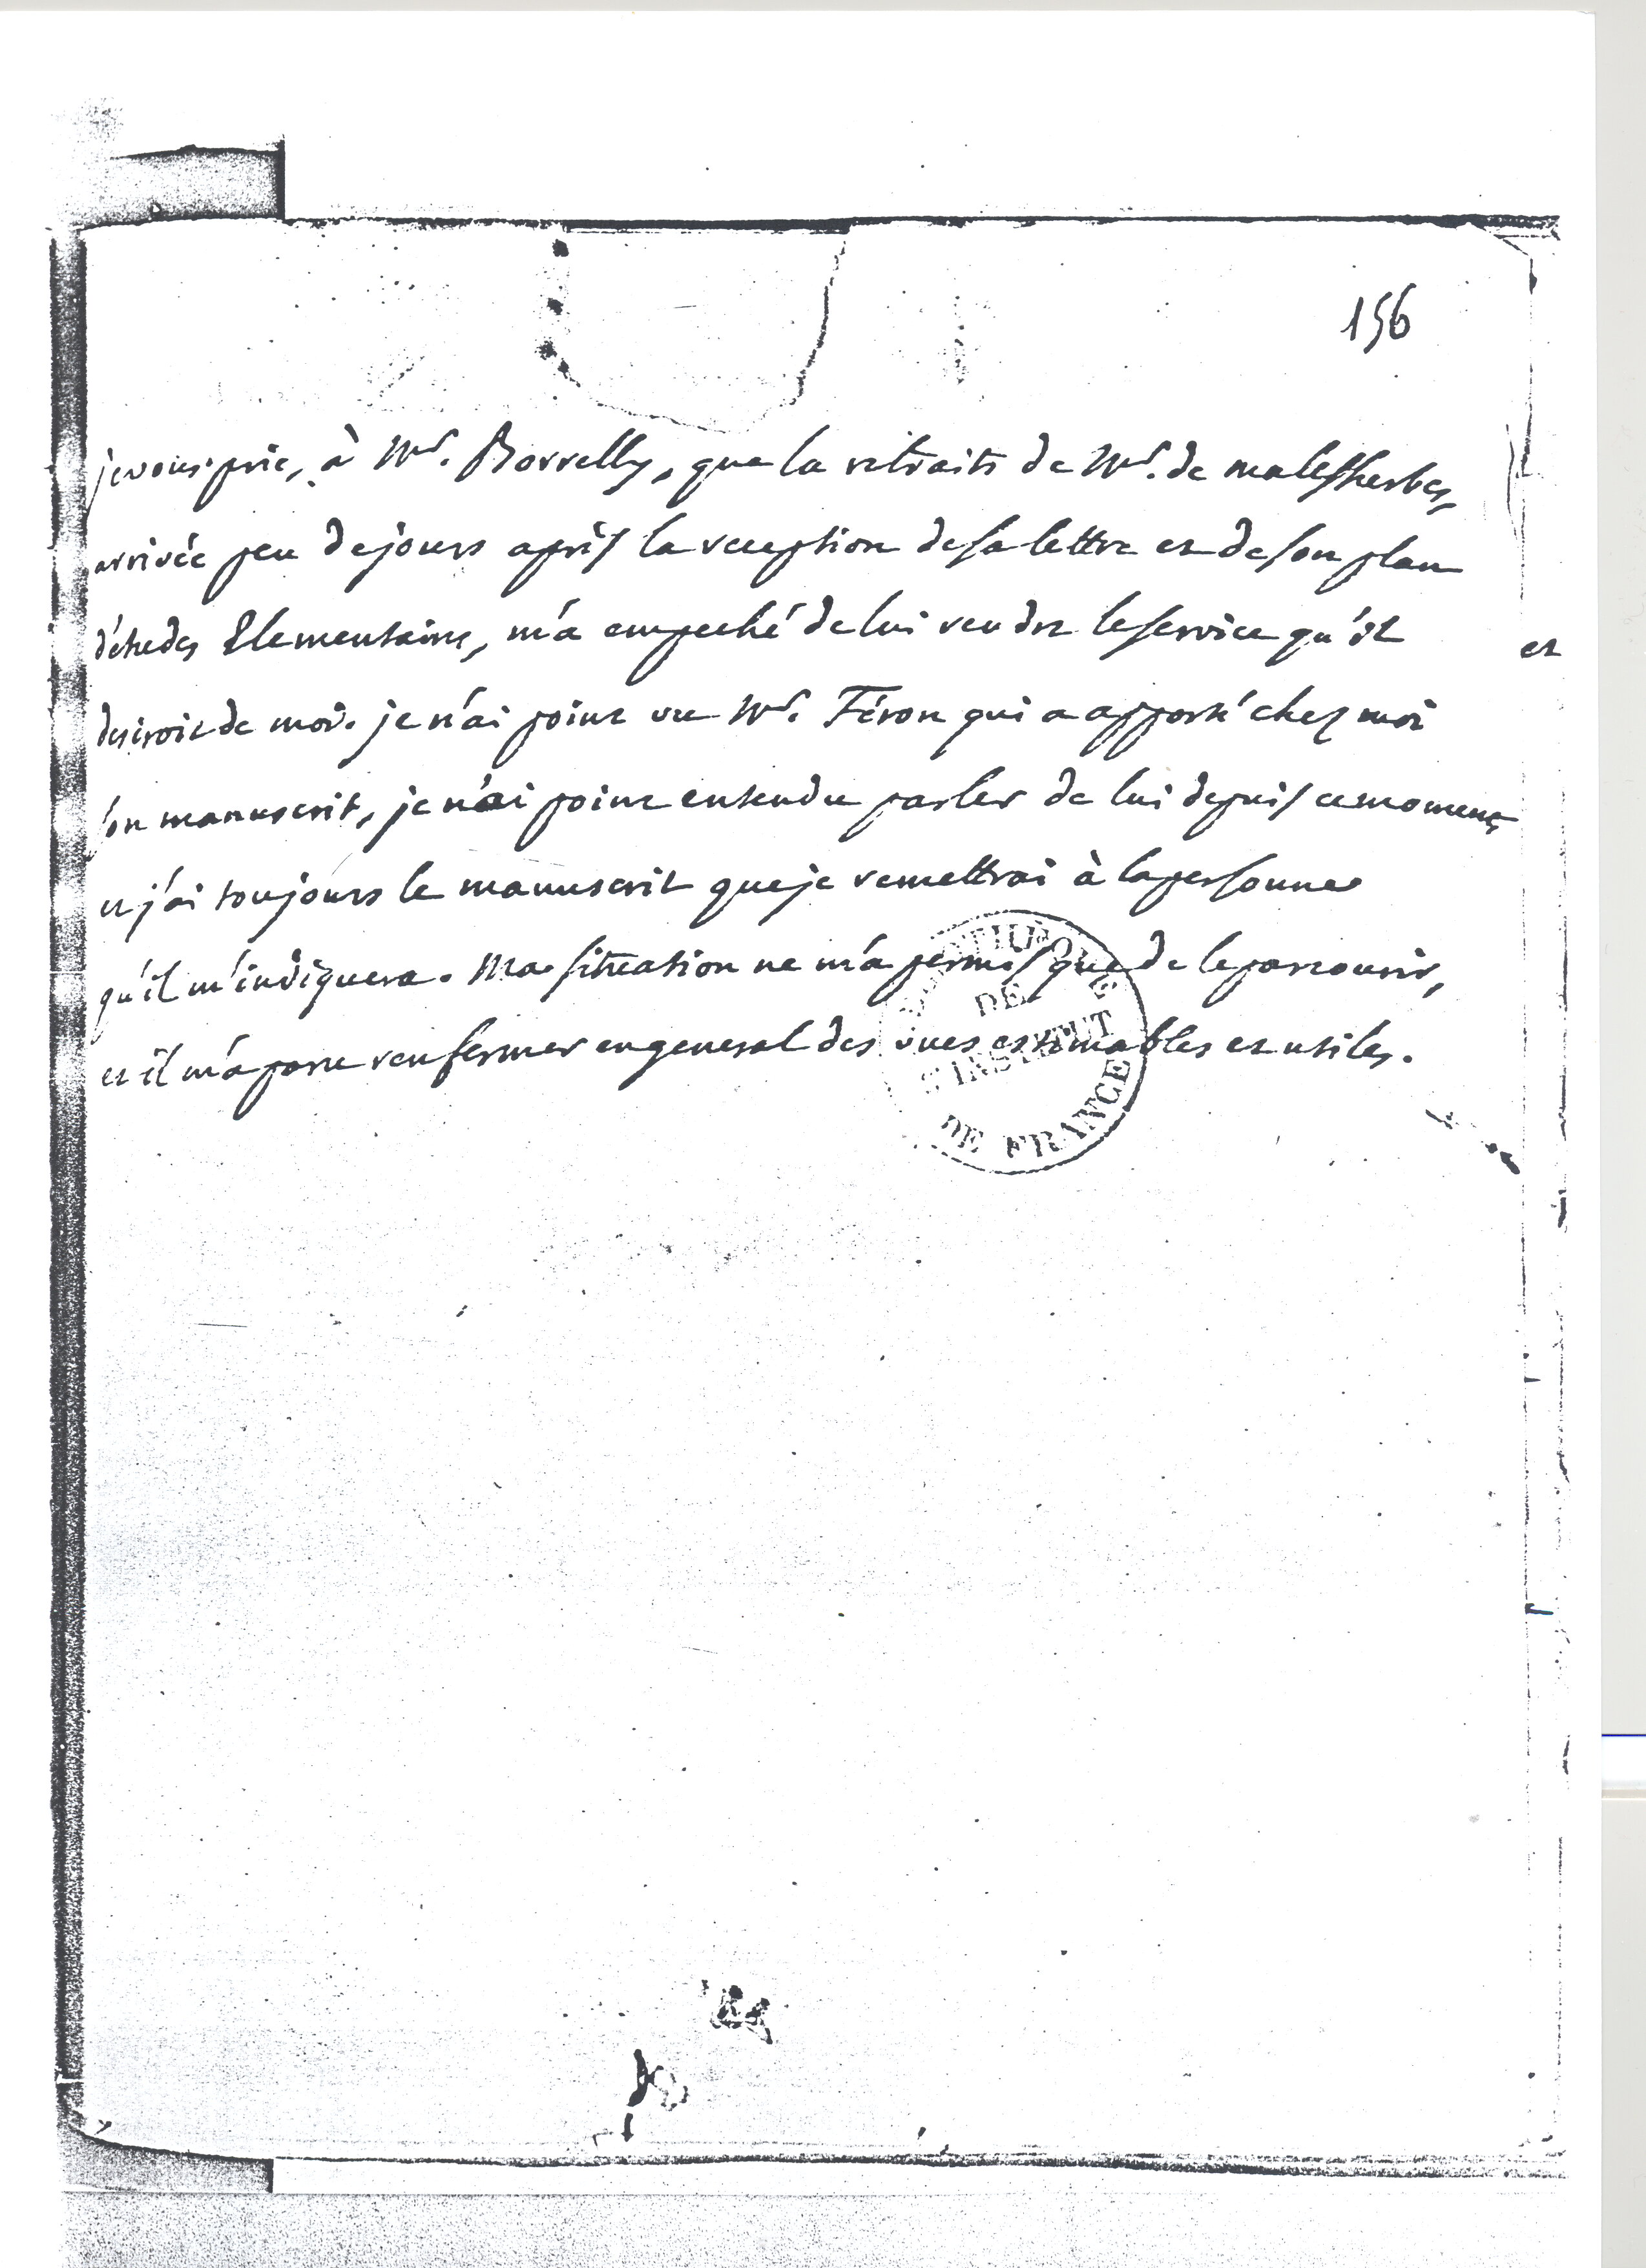 156
je vous prie, à Mr. Borrelly, que la retraite de Mr. de malesherbes,
arrivée peu de jours après la reception de sa lettre et de son plan
d'études Elementaires, m'a empeché de lui rendre le service qu'il
desiroit de moi. je n'ai point vu Mr. Féron qui a apporté chez moi
son manuscrit, je n'ai point entendu parler de lui depuis ce moment,
et j'ai toujours le manuscrit que je remettrai à la personne
qu'il m'indiquera. Ma situation ne m'a permis que de le parcourir,
et il m'a paru renfermer en general des vues estimables et utiles.
et
BIBLIOTHEQUE
DE
L'INSTITUT
DE FRANCE